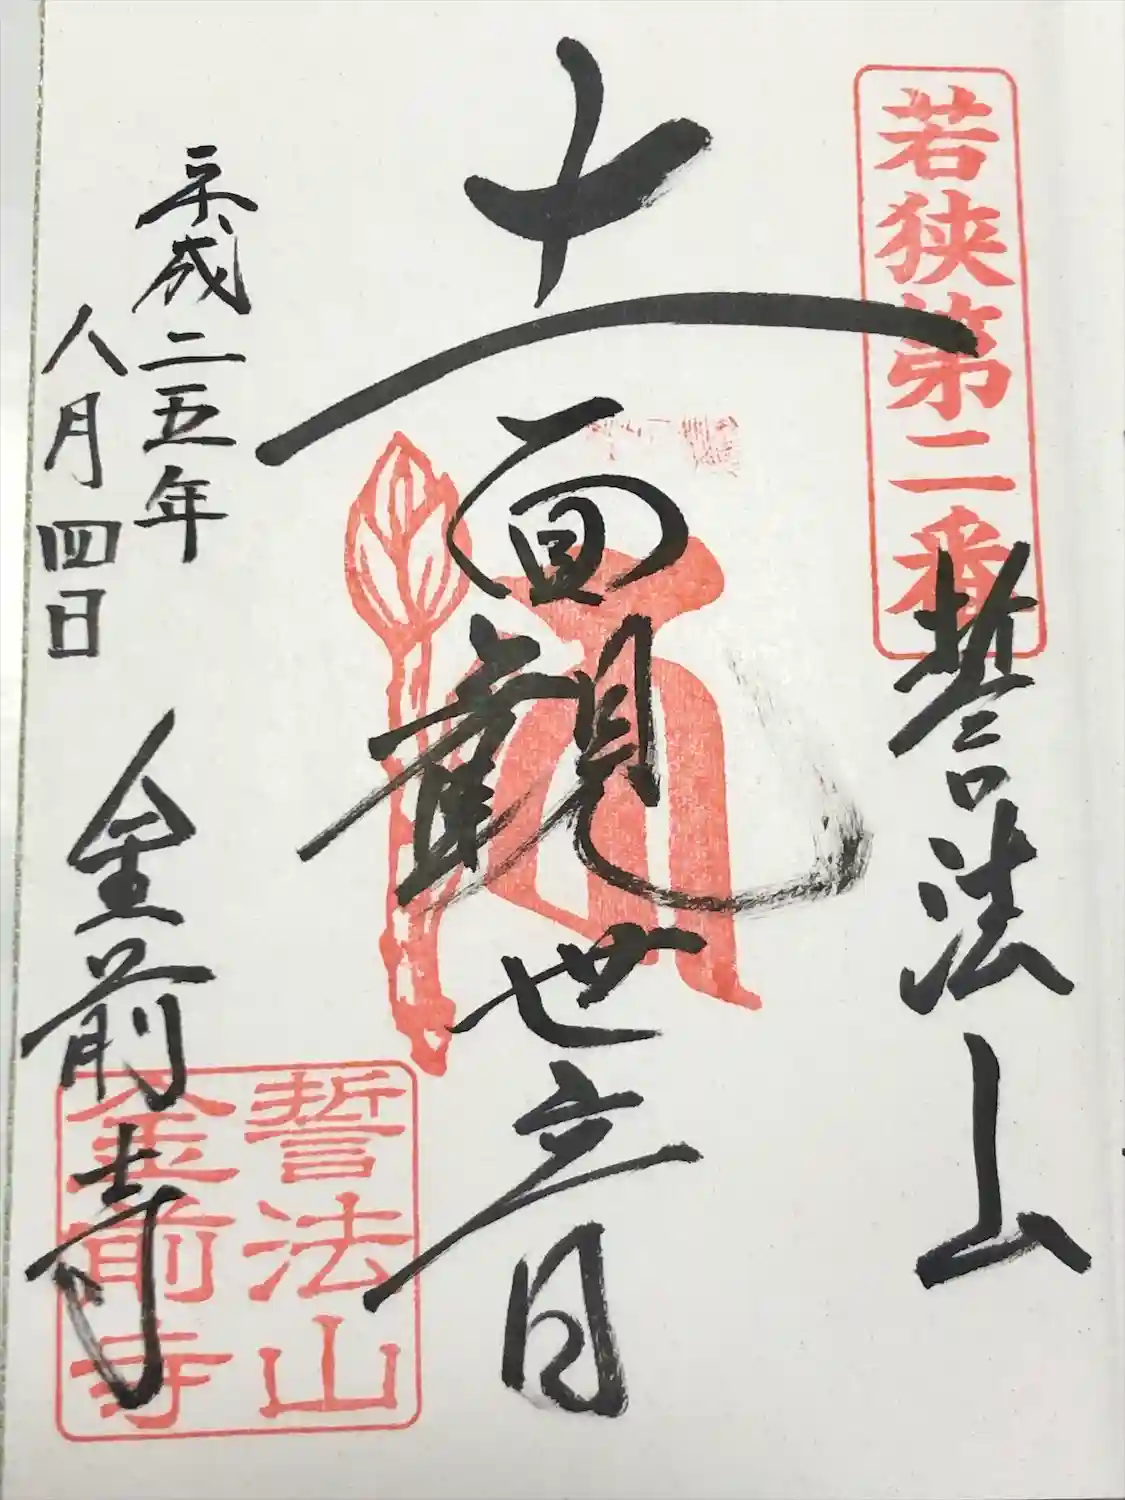 若狭第二番
誓法山
十一面観世音
平成二五年
八月四日
金前寺
誓法山
金前寺